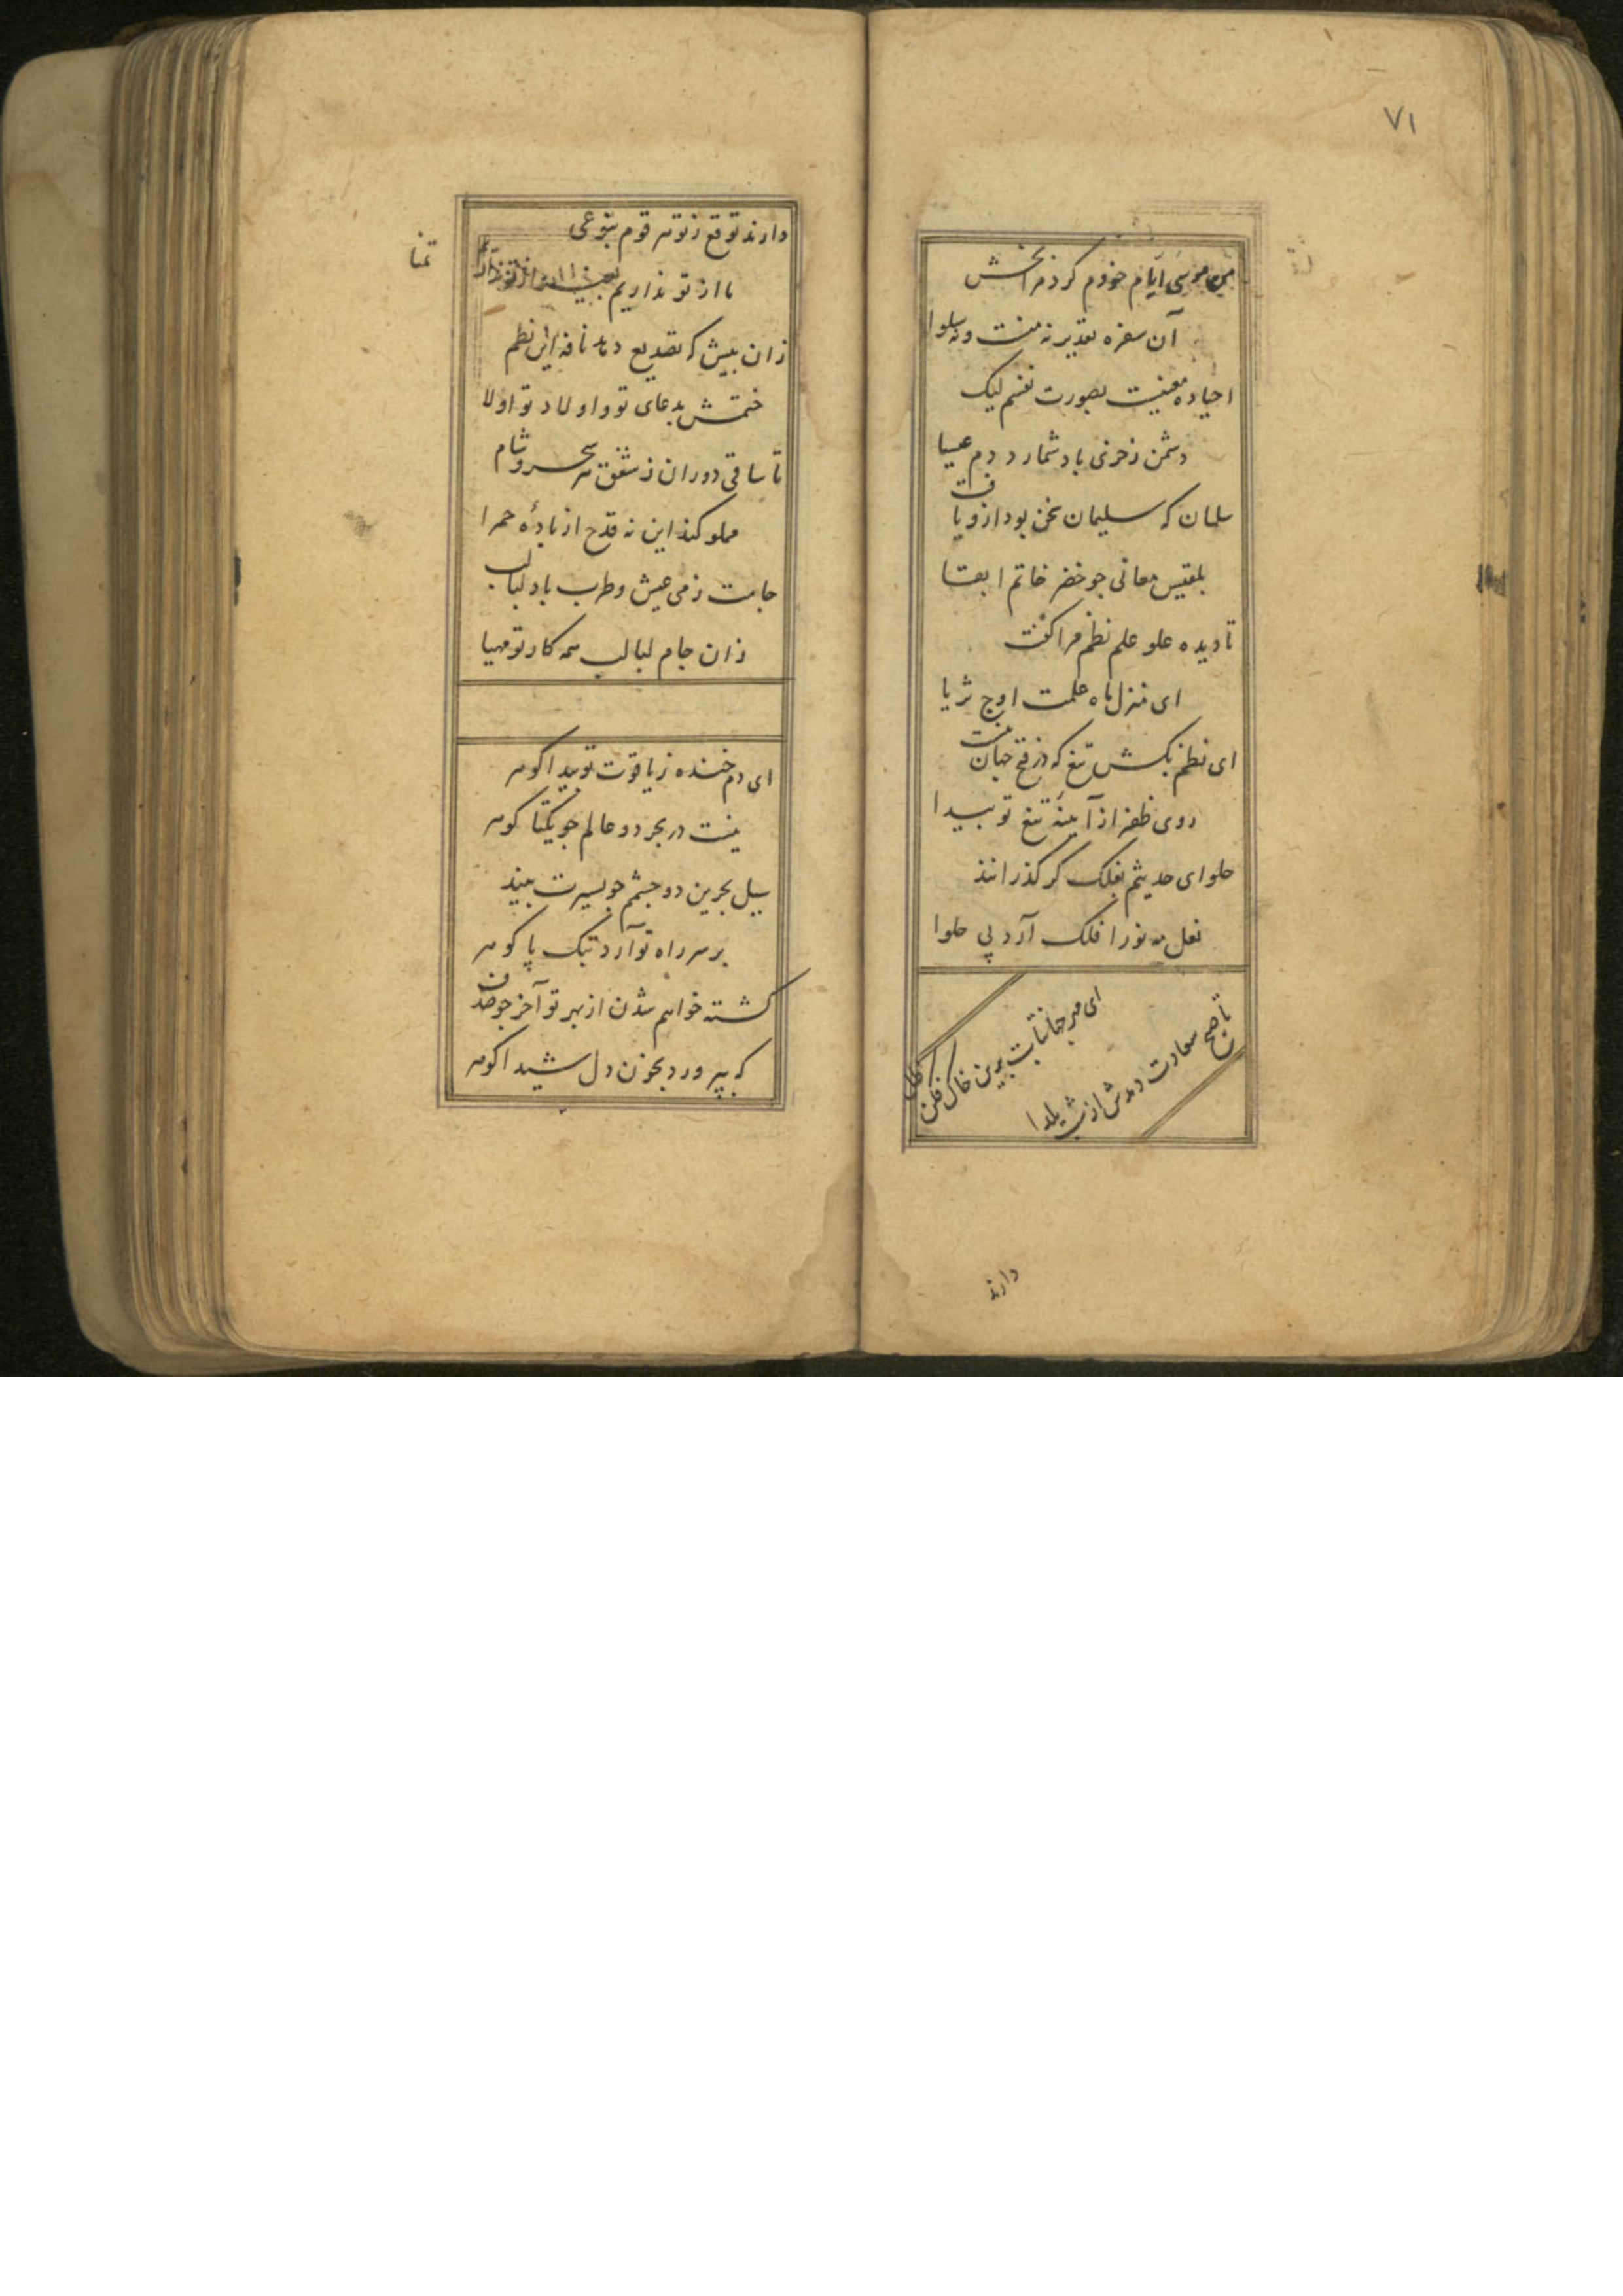 ۷۱
من موسی ایام خودم کرد مرا بخش
آن سفره تقدیر نه منت و نه سلوا
احیاده معنیست بصورت نفسم لیک
دشمن ز خری باد شمارد دم عیسا
سلمان که سلیمان سخن بود ازو یافت
بلقیس معانی جو خضر خاتم ابقا
تا دیده علو علم نظم مرا گفت
ای منزل ماه علمت اوج ثریا
ای نظم بکش تیغ که در فتح جهان نیست
روی ظفر از آیینهٔ تیغ تو پیدا
حلوای حدیثم بفلک کر کذرانند
نعل مه نو را فلک آرد پی حلوا
ای مهر جهانتاب برین خاک فکن ظل
تا صبح سعادت دمدش از شب یلدا
دارند
دارند توقع ز تو هر قوم بنوعی
ما از تو نداریم بغیر از تو تمنا
تمنا
زان بیش که تصدیع دماند نافهٔ این نظم
ختمش بدعای تو و اولاد تو اولا
تا ساقی دوران ز شفق هر سحر و شام
مملو کند این نه قدح از بادهٔ حمرا
جامت ز می عیش و طرب باد لبالب
زان جام لبالب همه کار تو مهیا
ای دم خنده ز یاقوت تو پیدا کوهر
نیست در بحر دو عالم جو تو یکتا کوهر
سیل بحرین دو جشم جو بسیرت بیند
بر سر راه تو آرد بتک پا کوهر
کشته خواهم شدن از بهر تو آخر جو صدف
که بپرورد بخون دل شیدا کوهر